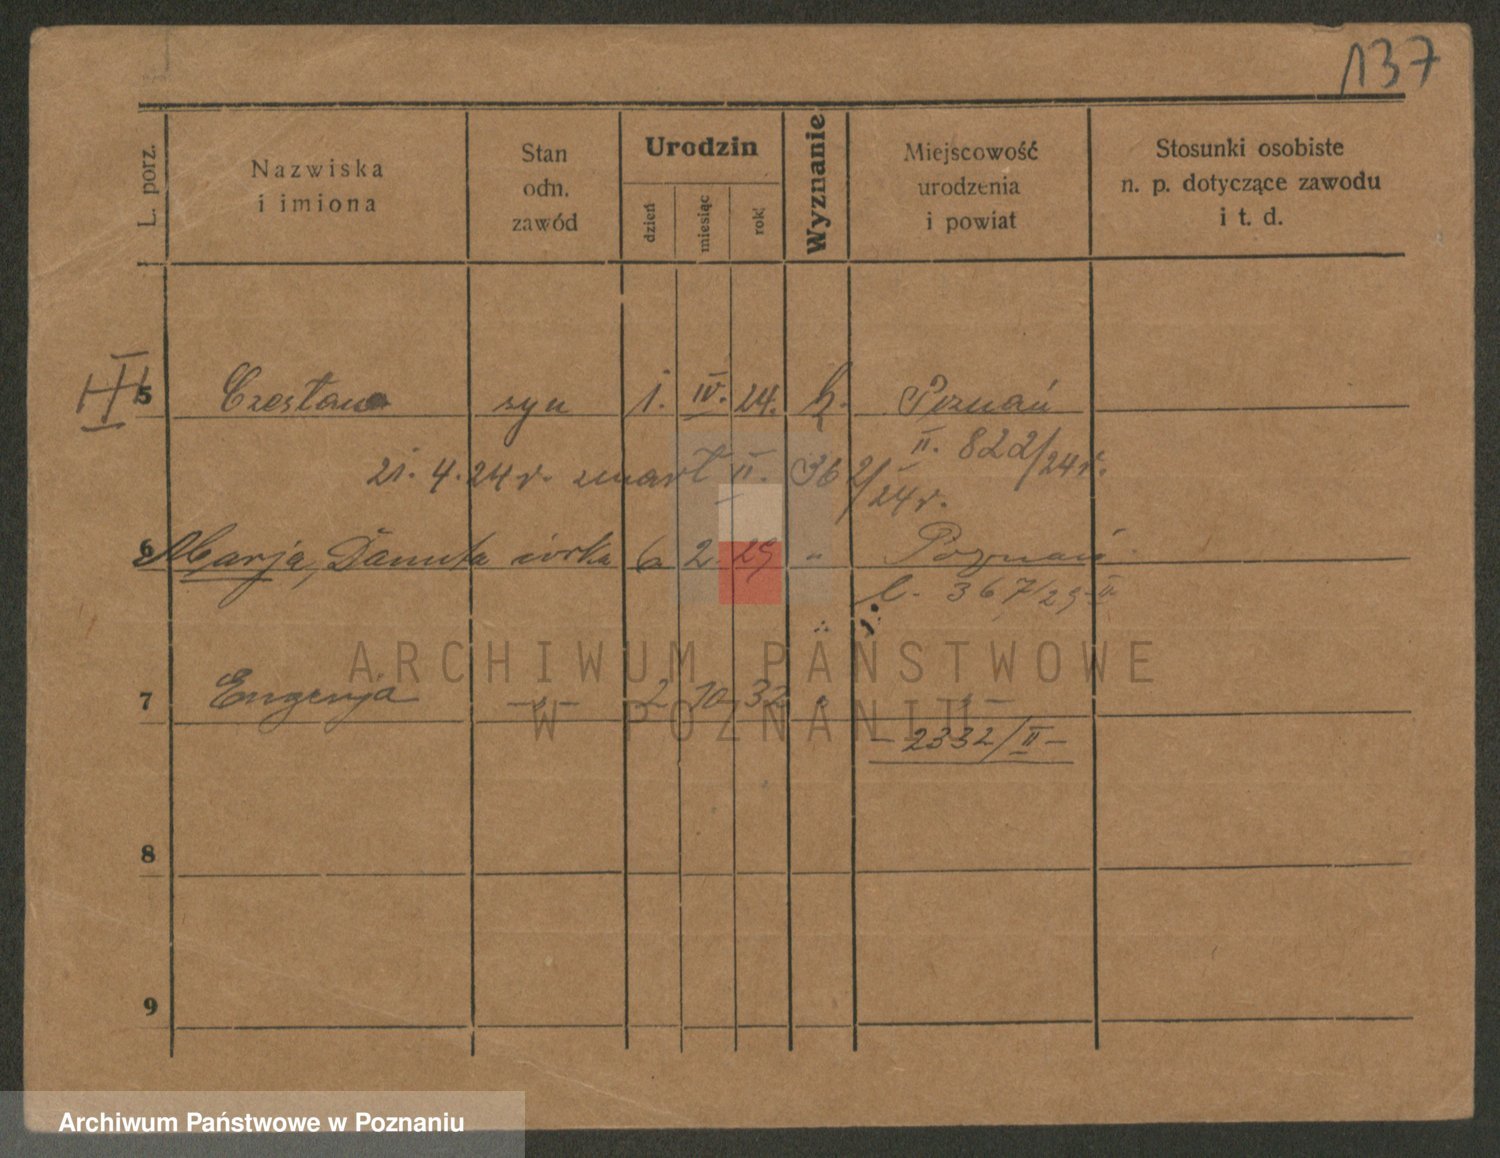 137
L. porz.
Nazwiska
i imiona
Stan
odn.
zawód
Urodzin
dzień
miesiąc
rok
Wyznanie
Miejscowość
urodzenia
i powiat
Stosunki osobiste
n. p. dotyczące zawodu
i t. d.
5 Czesław syn 1. IV. 24. k. Poznań
II. 822/24r.
21. 4. 24r. zmarł II. 362/24r.
6 Marja, Danuta córka 6 2. 29 " Poznań
C. 367/29 II.
7 Eugenja -"- 2 10 32 " -"-
- 2332/II -
8
9
ARCHIWUM PAŃSTWOWE
W POZNANIU
Archiwum Państwowe w Poznaniu